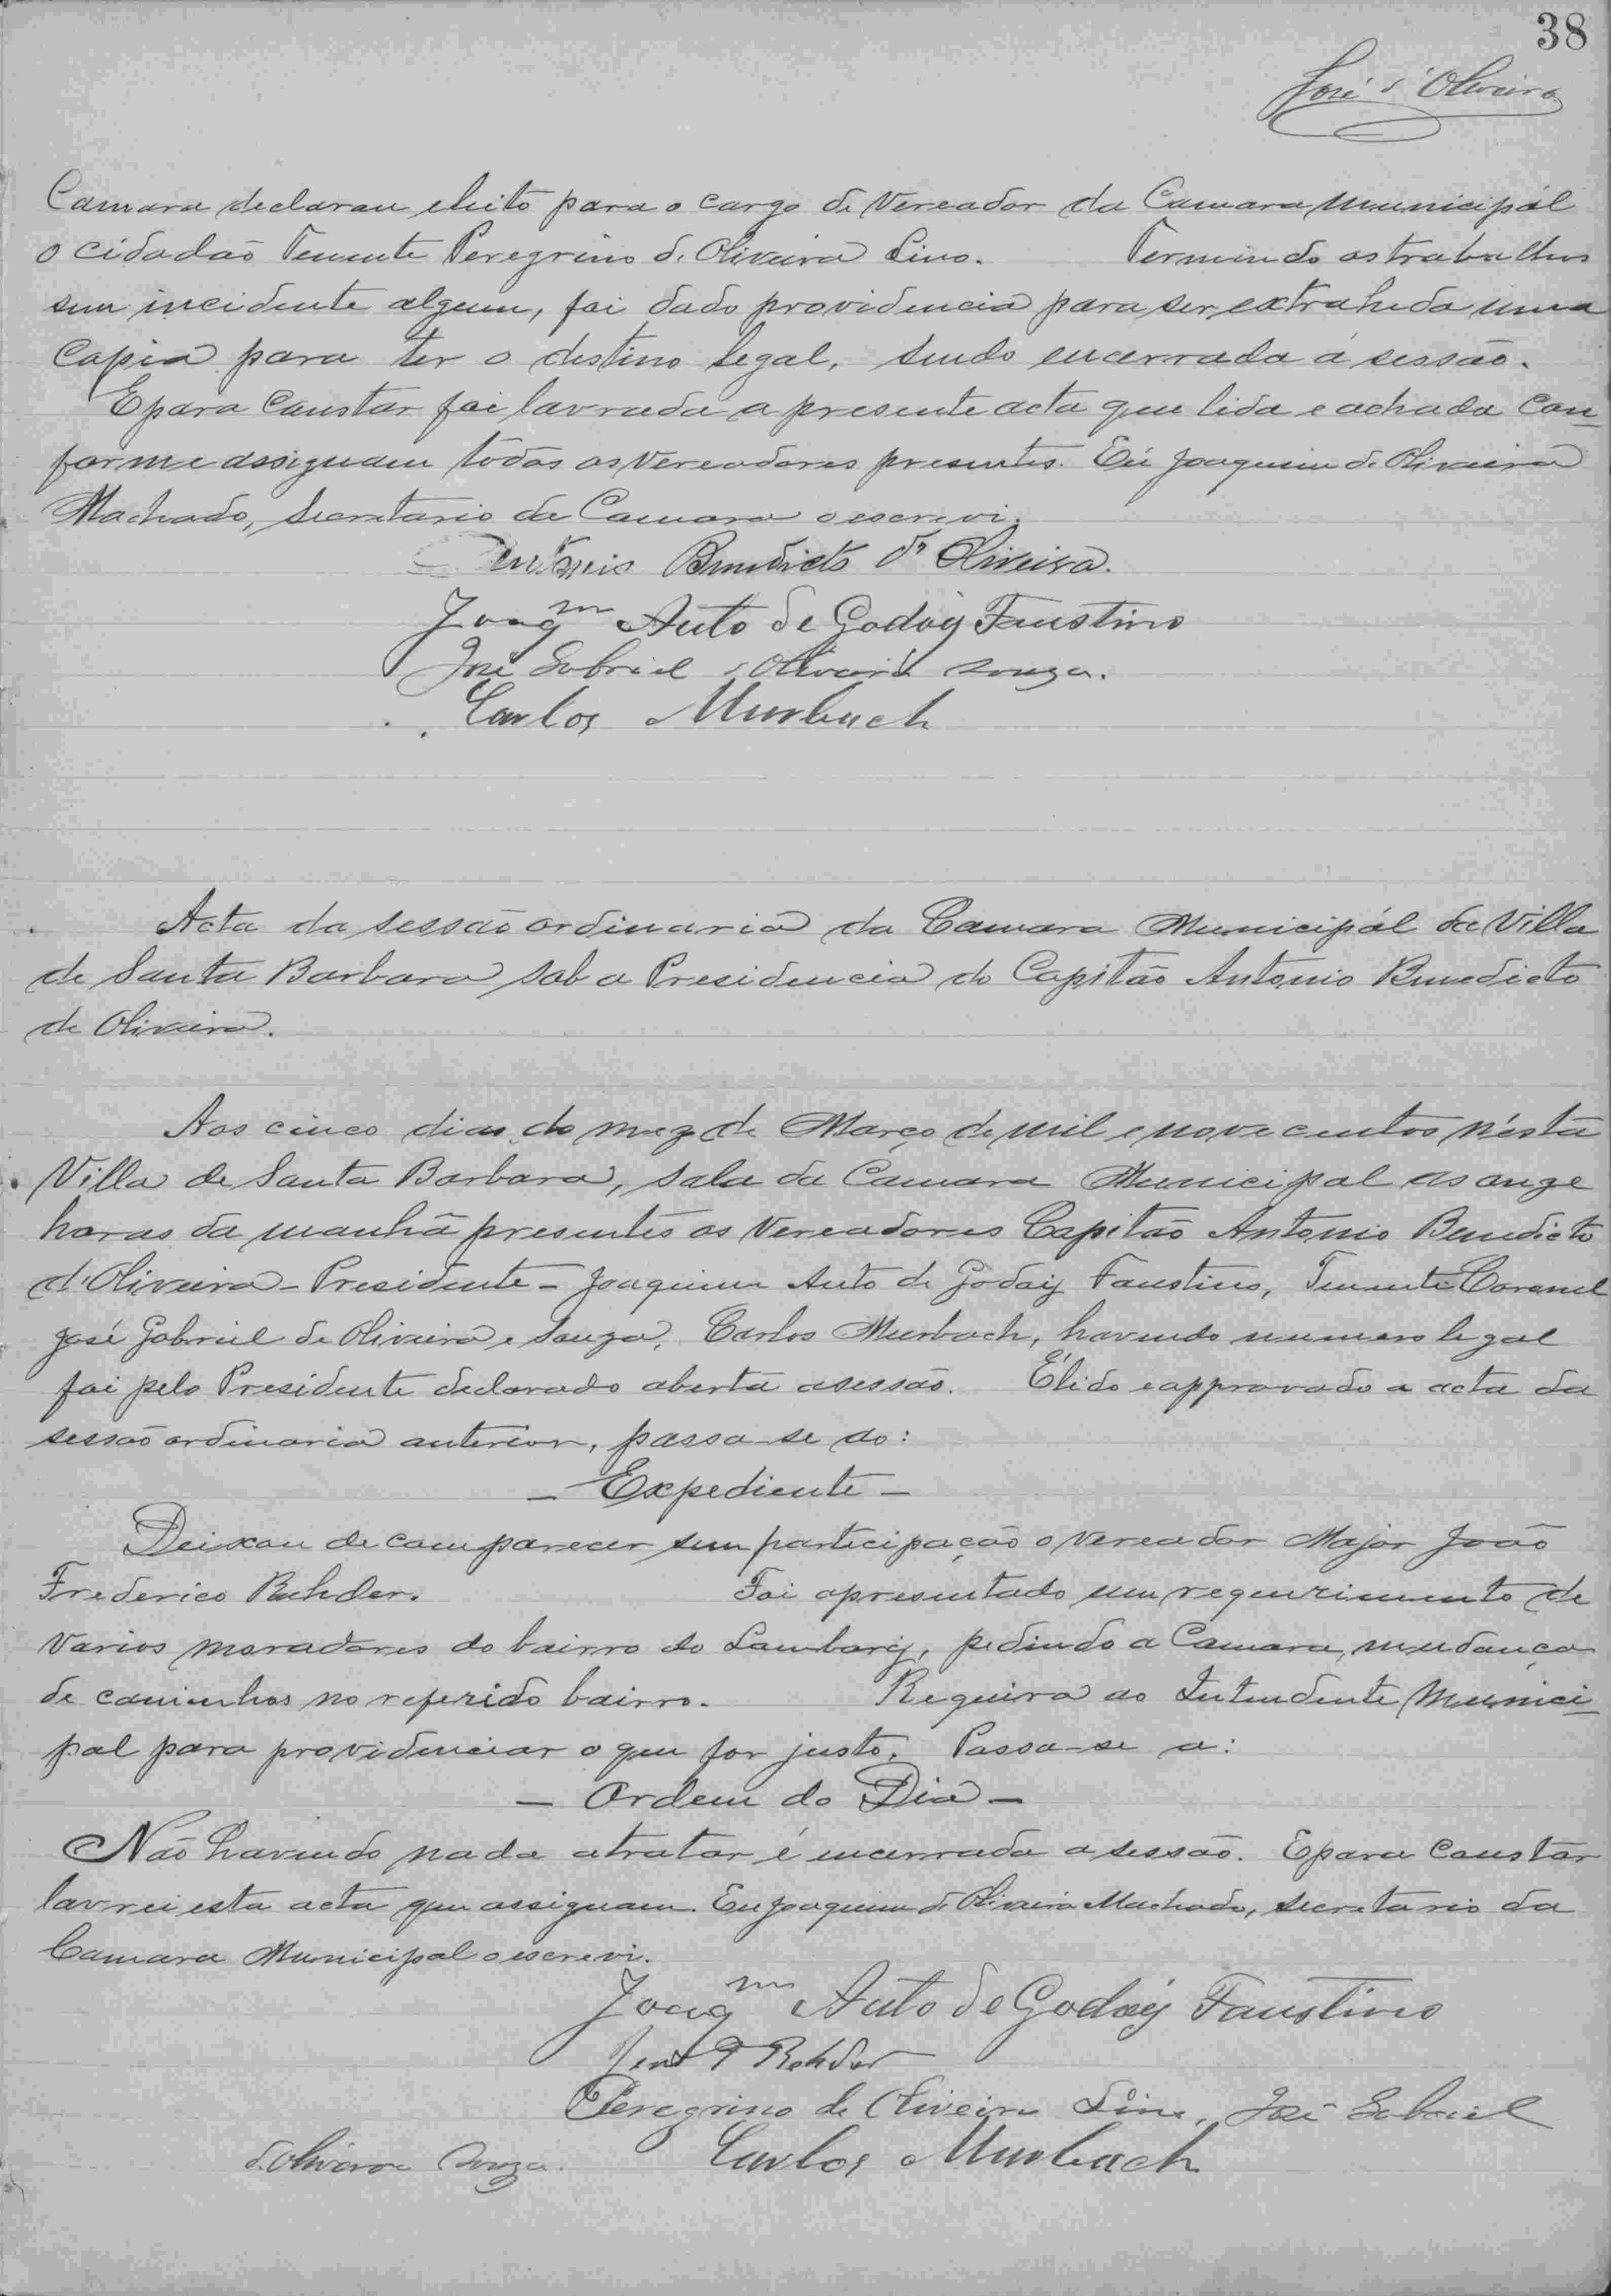 38
José d'Oliveira
Camara declarou eleito para o cargo de Vereador da Camara Municipál
o cidadaõ Tenente Peregrino de Oliveira Lino. Termindo os trabalhos
sem incidente algum, foi dado providencia para ser extrahida uma
Copia para ter o destino legal, sendo encerrada á sessão.
E para Constar foi lavrada a presente acta que lida e achada Con-
forme assignam todos os Vereadores presentes. Eu Joaquim de Oliveira
Machado, Secretario da Camara o escrevi.
Antonio Benedicto d' Oliveira.
Joaqm Auto de Godoy Faustino
José Gabriel d'Oliveira Souza.
Carlos Murbach
Acta da sessão ordinaria da Camara Municipál da Villa
de Santa Barbara sob a Presidencia do Capitão Antonio Benedicto
de Oliveira.
Aos cinco dias do mez de Março de mil e novecentos n'esta
Villa de Santa Barbara, sala da Camara Municipal as onze
horas da manhã presentes os Vereadores Capitão Antonio Benedicto
d'Oliveira - Presidente - Joaquim Auto de Godoy Faustino, Tenente Coronel
José Gabriel de Oliveira e Souza, Carlos Murbach, havendo numero legal
foi pelo Presidente declarado aberta a sessão. É lido e approvado a acta da
sessão ordinaria anterior, passa-se ao:
- Expediente -
Deixou de comparecer sem participação o vereador Major João
Frederico Rehder. Foi apresentado um requerimento de
Varios moradores do bairro do Lambary, pedindo a Camara, mudança
de caminhos no referido bairro. Requeira ao Intendente Munici-
pal para providenciar o que for justo. Passa-se a:
- Ordem do Dia -
Não havendo nada a tratar é encerrada a sessão. E para Constar
lavrei esta acta que assignam. Eu Joaquim de Oliveira Machado, secretario da
Camara Municipal o escrevi.
Joaqm Auto de Godoy Faustino
F Rehder
Peregrino de Oliveira Lino, José Gabriel
d'Oliveira Souza. Carlos Murbach